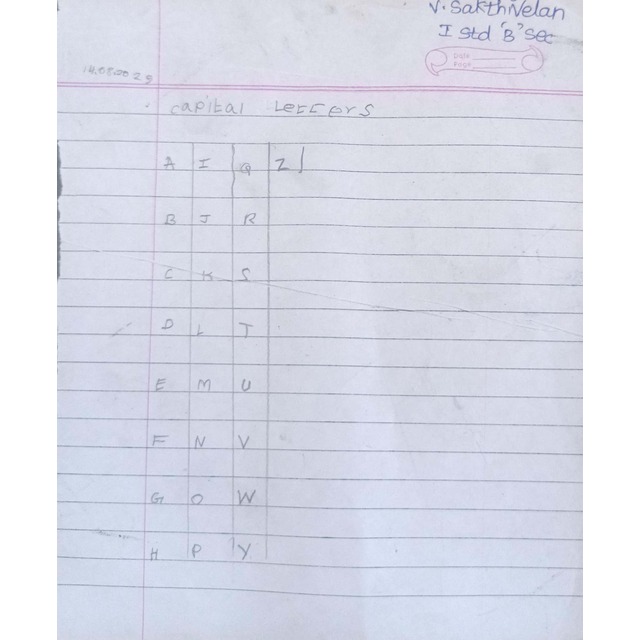 V. Sakthivelan
I std 'B' sec
Date
Page
Capital Letters
A I Q Z
B J R
C K S
D L T
E M U
F N V
G O W
H P Y